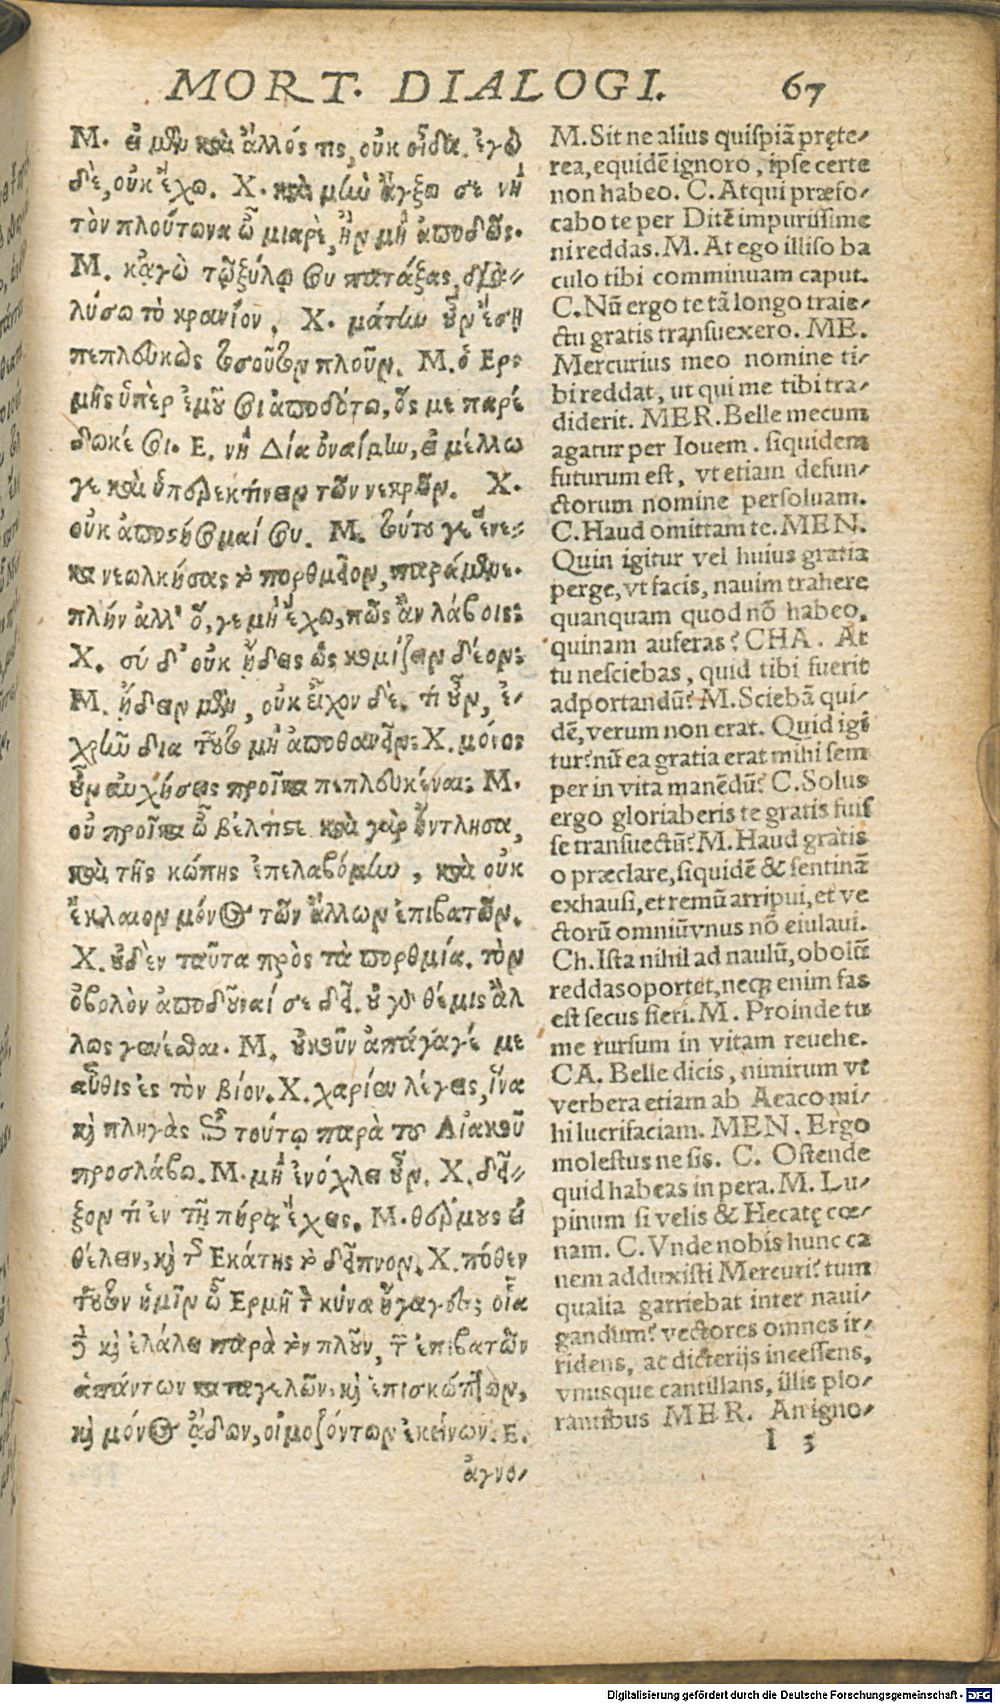 MORT. DIALOGI. 67
Μ. εἰ μὲν καὶ ἄλλός τις, οὐκ οἶδα. ἐγὼ
δὲ, οὐκ ἔχω. Χ. καὶ μὴν ἄγξω σε νὴ
τὸν πλούτωνα ὦ μιαρὲ, ἢν μὴ ἀποδῷς.
Μ. κἀγὼ τῷ ξύλῳ σου πατάξας, διὰ-
λύσω τὸ κρανίον. Χ. μάτην οὖν ἔσῃ
πεπλευκὼς τοσοῦτον πλοῦν. Μ. ὁ Ερ-
μῆς ὑπὲρ ἐμοῦ σοι ἀποδότω, ὅς με παρέ
δωκέ σοι. Ε. νὴ Δία ὀναίμην, εἰ μέλλω
γε καὶ ὑπερεκτίνειν τῶν νεκρῶν. Χ.
οὐκ ἀποστήσομαί σου. Μ. τούτου γε ἕνε-
κα νεωλκήσας τὸ πορθμεῖον, παράμενε.
πλὴν ἀλλ' ὅ, γε μὴ ἔχω, πῶς ἂν λάβοις;
Χ. σύ δ' οὐκ ᾔδεις ὡς κομίζειν δέον;
Μ. ᾔδειν μὲν, οὐκ εἶχον δὲ. τί οὖν, ἐ-
χρῆν δια τοῦτο μὴ ἀποθανεῖν; Χ. μόνος
οὖν αὐχήσεις προῖκα πεπλευκέναι; Μ.
οὐ προῖκα ὦ βέλτιστε. καὶ γὰρ ἤντλησα,
καὶ τῆς κώπης ἐπελαβόμην, καὶ οὐκ
ἔκλαιον μόνος τῶν ἄλλων ἐπιβατῶν.
Χ. οὐδὲν ταῦτα πρὸς τὰ πορθμία. τὸν
ὀβολὸν ἀποδοῦναί σε δεῖ. οὐ γὰρ θέμις ἄλ
λως γενέσθαι. Μ. οὐκοῦν ἀπάγαγέ με
αὖθις ἐς τὸν βίον. Χ. χαρίεν λέγεις, ἵνα
καὶ πληγὰς ἐπὶ τούτῳ παρὰ τοῦ Αἰακοῦ
προσλάβω. Μ. μὴ ἐνόχλει οὖν. Χ. δεῖ-
ξον τί ἐν τῇ πήρᾳ ἔχεις. Μ. θέρμους εἰ
θέλειν, καὶ τῆς Εκάτης τὸ δεῖπνον. Χ. πόθεν
τοῦτον ἡμῖν ὦ Ερμῆ τὸν κύνα ἤγαγες; οἷα
δὲ καὶ ἐλάλει παρὰ τὸν πλοῦν, τῶν ἐπιβατῶν
ἁπάντων καταγελῶν, καὶ ἐπισκώπτων,
καὶ μόνος ᾄδων, οἰμοζόντων ἐκείνων. Ε.
ἀγνο-
M. Sit ne alius quispiā pręte-
rea, equidē ignoro, ipse certe
non habeo. C. Atqui præfo-
cabo te per Ditē impurissime
ni reddas. M. At ego illiso ba
culo tibi comminuam caput.
C. Nū ergo te tā longo traie-
ctu gratis transuexero. ME.
Mercurius meo nomine ti-
bi reddat, ut qui me tibi tra-
diderit. MER. Belle mecum
agatur per Iouem. siquidem
futurum est, vt etiam defun-
ctorum nomine persoluam.
C. Haud omittam te. MEN.
Quin igitur vel huius gratia
perge, vt facis, nauim trahere
quanquam quod nō habeo,
quinam auferas? CHA. At
tu nesciebas, quid tibi fuerit
adportandū? M. Sciebā qui-
dē, verum non erat. Quid igi
tur? nū ea gratia erat mihi sem
per in vita manēdū? C. Solus
ergo gloriaberis te gratis fuis
se transuectū? M. Haud gratis
o præclare, siquidē & sentinā
exhausi, et remū arripui, et ve
ctorū omniū vnus nō eiulaui.
Ch. Ista nihil ad naulū, obolū
reddas oportet, neq; enim fas
est secus fieri. M. Proinde tu
me rursum in vitam reuehe.
CA. Belle dicis, nimirum vt
verbera etiam ab Aeaco mi-
hi lucrifaciam. MEN. Ergo
molestus ne sis. C. Ostende
quid habeas in pera. M. Lu-
pinum si velis & Hecatę cœ-
nam. C. Vnde nobis hunc ca
nem adduxisti Mercuri? tum
qualia garriebat inter naui-
gandum? vectores omnes ir-
ridens, ac dicterijs incessens,
vnusque cantillans, illis plo-
rantibus MER. An igno-
I 3
Digitalisierung gefördert durch die Deutsche Forschungsgemeinschaft - DFG